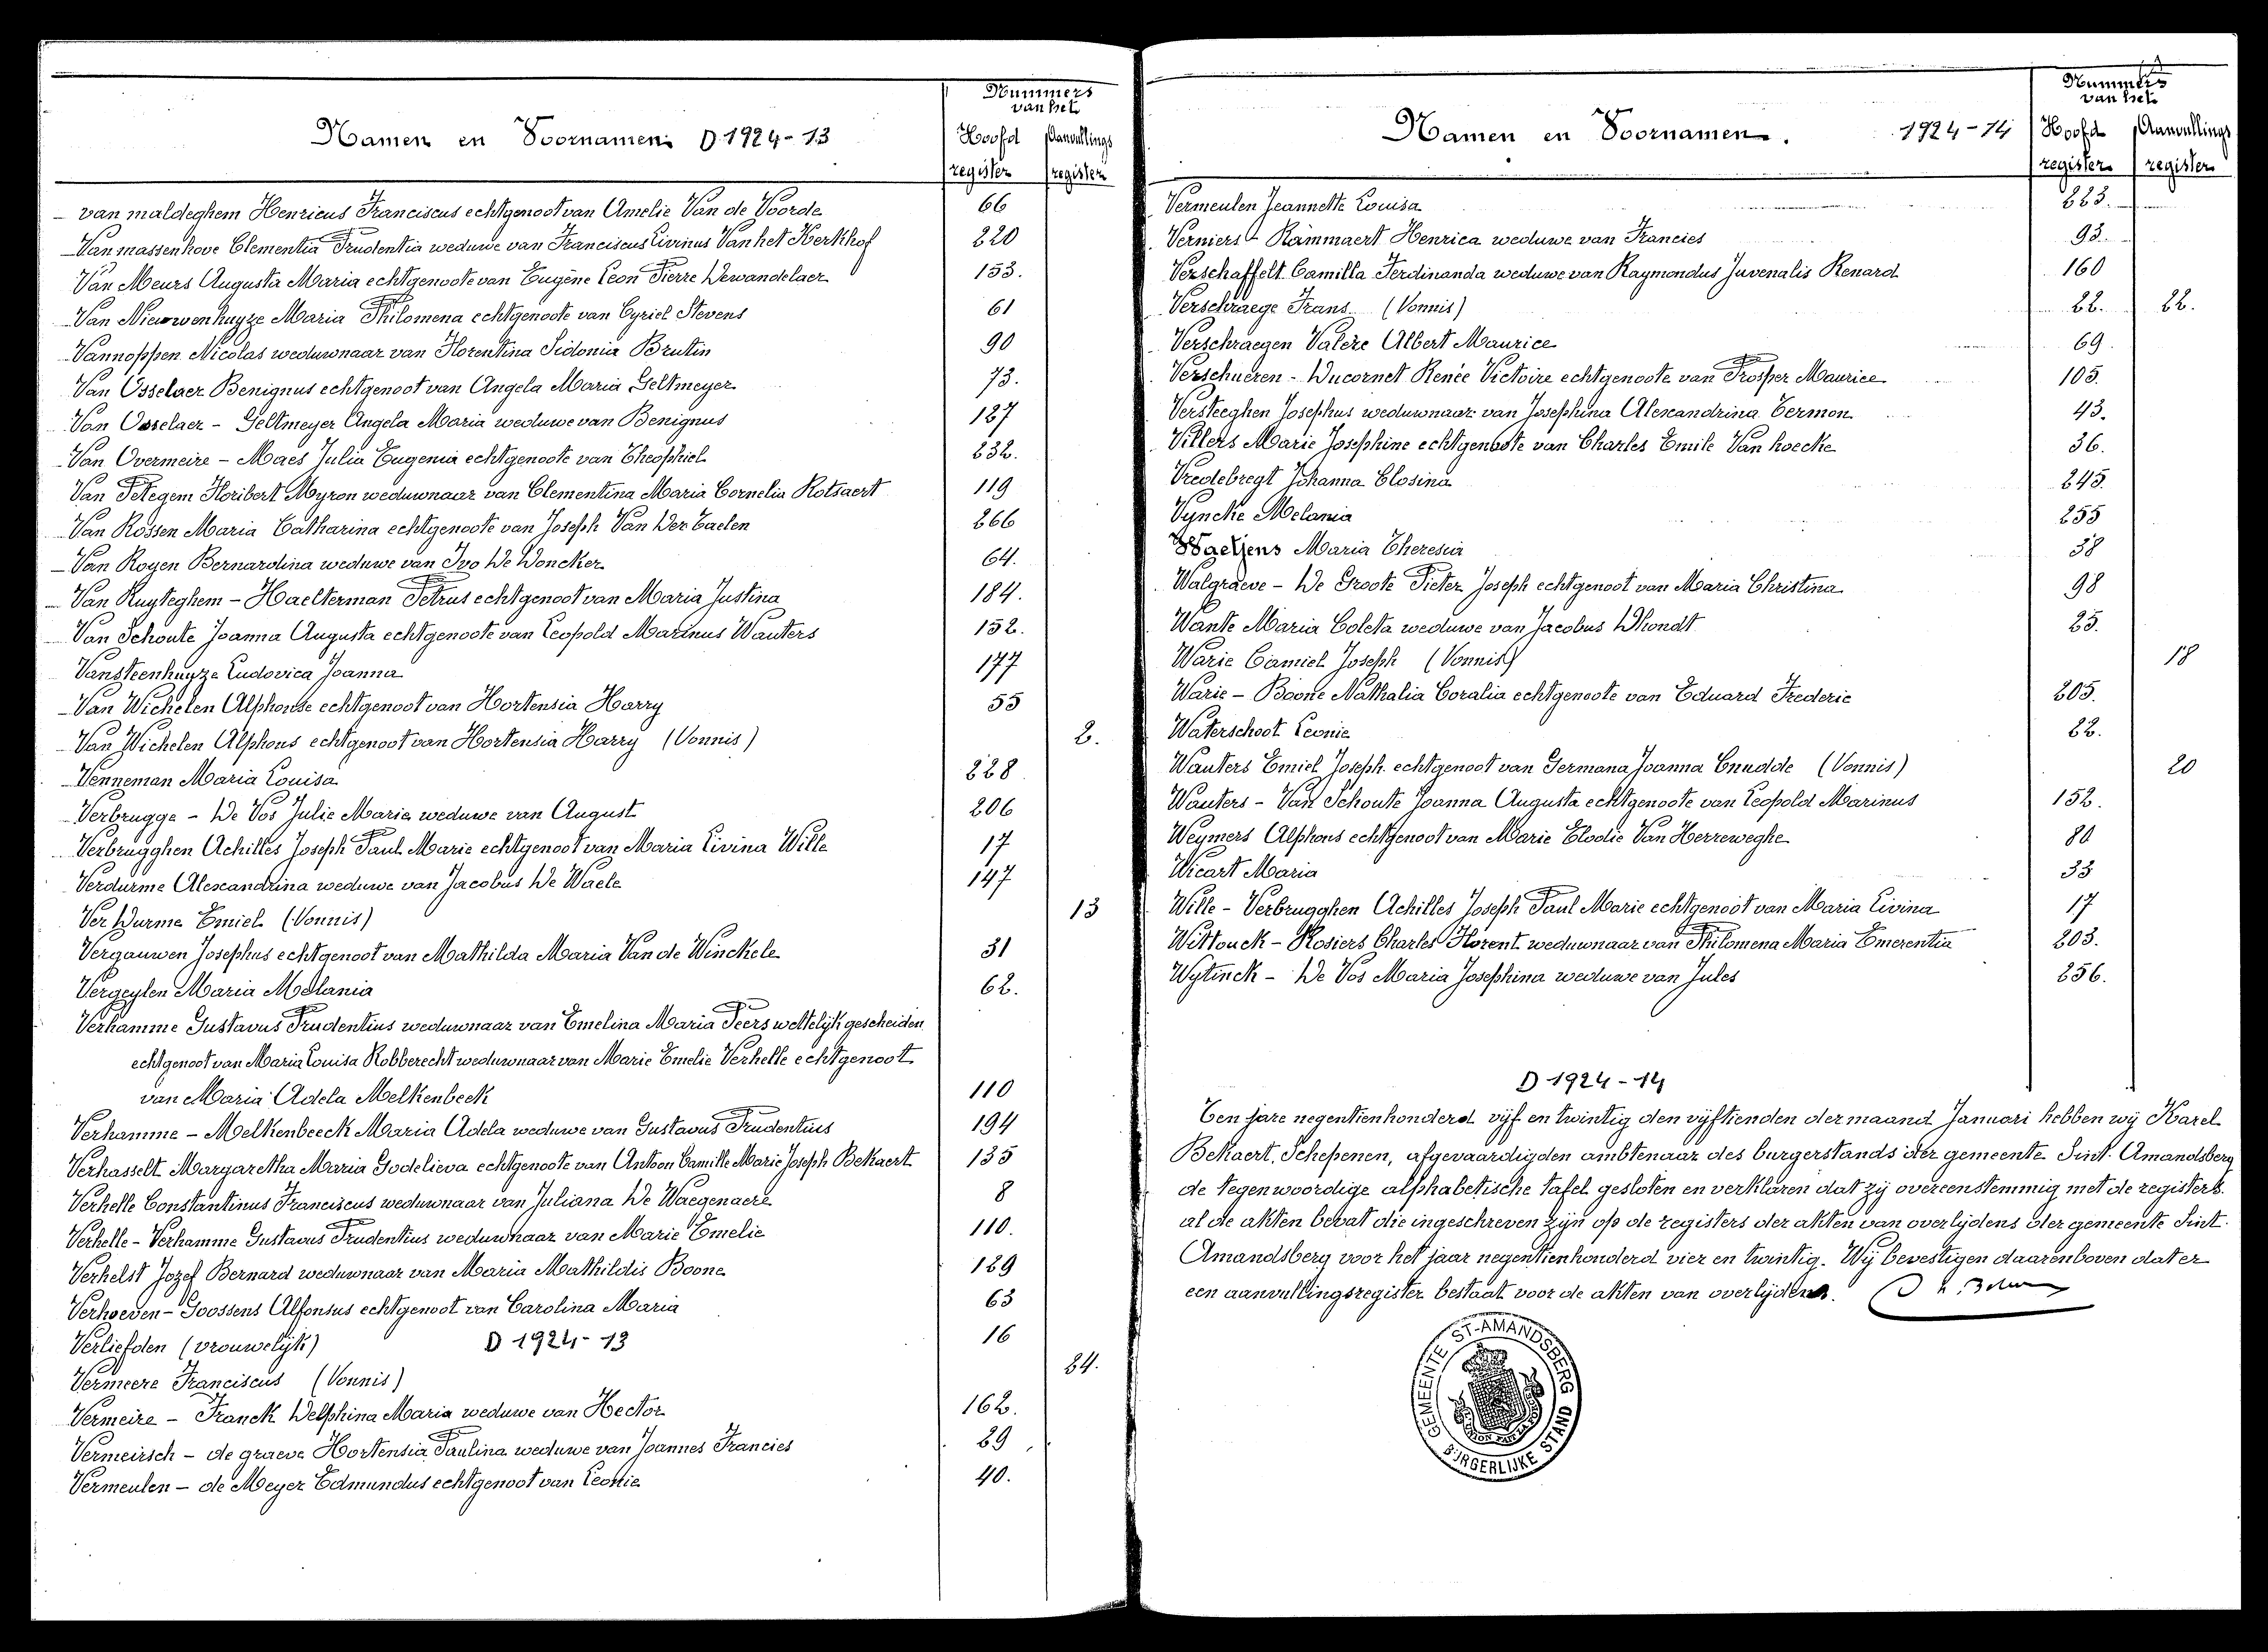 Namen en Voornamen. D.1924-13
Nummers van het
Hoofd register
Aanvullings register
van maldeghem Henricus Franciscus echtgenoot van Amelie Van de Voorde 66
Van massenhove Clementia Prudentia weduwe van Franciscus Livinus Van het Kerkhof 220
Van Meurs Augusta Maria echtgenoote van Eugène Leon Pierre Dewandelaer 153.
Van Nieuwenhuyze Maria Philomena echtgenoote van Cyriel Stevens 61
Vannoppen Nicolas weduwnaar van Florentina Sidonia Brutin 90
Van Osselaer Benignus echtgenoot van Angela Maria Geltmeyer 73.
Van Osselaer - Geltmeyer Angela Maria weduwe van Benignus 187
Van Overmeire - Maes Julia Eugenia echtgenoote van Theophiel 232.
Van Petegem Floribert Myron weduwnaar van Clementina Maria Cornelia Rotsaert 119
Van Rossen Maria Catharina echtgenoote van Joseph Van Der Taelen 266
Van Royen Bernardina weduwe van Ivo De Doncker 64.
Van Ruyteghem - Haelterman Petrus echtgenoot van Maria Justina 184.
Van Schoute Joanna Augusta echtgenoote van Leopold Marinus Wauters 152.
Vansteenhuyze Ludovica Joanna 177
Van Wichelen Alphonse echtgenoot van Hortensia Harry 55
Van Wichelen Alphons echtgenoot van Hortensia Harry (Vonnis) 2.
Venneman Maria Louisa 228
Verbrugge - De Vos Julie Marie weduwe van August 206
Verbrugghen Achilles Joseph Paul Marie echtgenoot van Maria Livina Wille 17
Verdurme Alexandrina weduwe van Jacobus De Waele 147
Ver Durme Emiel (Vonnis) 13
Vergauwen Josephus echtgenoot van Mathilda Maria Van de Winckele 31
Vergeylen Maria Melania 62.
Verhamme Gustavus Prudentius weduwnaar van Emelina Maria Peers wettelijk gescheiden
echtgenoot van Maria Louisa Robberecht weduwnaar van Marie Emelie Verhelle echtgenoot
van Maria Adela Melkenbeek 110
Verhamme - Melkenbeeck Maria Adela weduwe van Gustavus Prudentius 194
Verhasselt Margaretha Maria Godelieva echtgenoote van Antoon Camille Marie Joseph Bekaert 135
Verhelle Constantinus Franciscus weduwnaar van Juliana De Waegenaere 8
Verhelle - Verhamme Gustavus Prudentius weduwnaar van Marie Emelie 110.
Verhelst Jozef Bernard weduwnaar van Maria Mathildis Boone 189
Verhoeven - Goossens Alfonsus echtgenoot van Carolina Maria 63
Verliefden (vrouwelijk) D 1924-13 16
Vermeere Franciscus (Vonnis) 24.
Vermeire - Franck Delphina Maria weduwe van Hector 162.
Vermeirsch - de graeve Hortensia Paulina weduwe van Joannes Francies 29
Vermeulen - de Meyer Edmundus echtgenoot van Leonie 40.
Namen en Voornamen. 1924-14
Nummers van het
Hoofd register
Aanvullings register
Vermeulen Jeannette Louisa 223.
Verniers - Rammaert Henrica weduwe van Francies 93.
Verschaffelt Camilla Ferdinanda weduwe van Raymondus Juvenalis Renard 160
Verschraege Frans (Vonnis) 22. 22.
Verschraegen Valère Albert Maurice 69.
Verschueren - Ducornet Renée Victoire echtgenoote van Prosper Maurice 105.
Versteeghen Josephus weduwnaar van Josephina Alexandrina Termon 43.
Villers Marie Josephine echtgenoote van Charles Emile Van hoecke 36.
Vredebregt Johanna Closina 245.
Vyncke Melania 255
Waetjens Maria Theresia 38
Walgraeve - De Groote Pieter Joseph echtgenoot van Maria Christina 98
Wante Maria Coleta weduwe van Jacobus D'hondt 25.
Warie Camiel Joseph (Vonnis) 18
Warie - Boone Nathalia Coralia echtgenoote van Eduard Frederic 205.
Waterschoot Leonie 82.
Wauters Emiel Joseph echtgenoot van Germana Joanna Cnudde (Vonnis) 20
Wauters - Van Schoute Joanna Augusta echtgenoote van Leopold Marinus 152.
Weymers Alphons echtgenoot van Marie Elodie Van Herreweghe 80
Wicart Maria 33
Wille - Verbrugghen Achilles Joseph Paul Marie echtgenoot van Maria Livina 17
Wittouck - Rosiers Charles Florent weduwnaar van Philomena Maria Emerentia 203.
Wytinck - De Vos Maria Josephina weduwe van Jules 256.
D 1924-14
Ten jare negentienhonderd vijf en twintig den vijftienden der maand Januari hebben wij Karel
Bekaert, Schepenen, afgevaardigden ambtenaar des burgerstands der gemeente Sint. Amandsberg
de tegenwoordige alphabetische tafel gesloten en verklaren dat zij overeenstemmig met de registers
al de akten bevat die ingeschreven zijn op de registers der akten van overlijdens der gemeente Sint.
Amandsberg voor het jaar negentienhonderd vier en twintig. Wij bevestigen daarenboven dat er
een aanvullingsregister bestaat voor de akten van overlijdens.
GEMEENTE ST-AMANDSBERG
BURGERLIJKE STAND